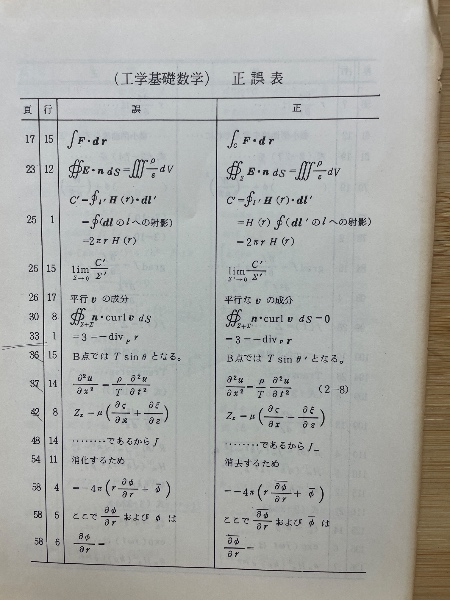 (工学基礎数学) 正誤表
頁 行 誤 正
17 15 ∫F・dr ∫_C F・dr
23 12 ∯E・n dS=∭ρ/ε dV ∯_Σ E・n dS=∭ρ/ε dV
C'=∮_l' H(r)・dl' C'=∮_l' H(r)・dl'
25 1 =∮(dlのlへの射影) =H(r)∮(dl'のlへの射影)
=2πr H(r) =2πr H(r)
25 15 lim C'/Σ' lim_Σ'→0 C'/Σ'
26 17 平行 v の成分 平行な v の成分
30 8 ∯_Σ+Σ n・curl v dS ∯_Σ+Σ n・curl v dS=0
33 1 =3=-div_p r =3=-div_p r
36 15 B点では T sin θ となる。 B点では T sin θ' となる。
37 14 ∂²u/∂x² = ρ/T ∂²u/∂t² ∂²u/∂x² = ρ/T ∂²u/∂t² (2-8)
42 8 Z_x=μ(∂ς/∂x + ∂ξ/∂z) Z_x=μ(∂ς/∂x + ∂ξ/∂z)
48 14 ………であるから J ………であるから J_
54 11 消化するため 消去するため
58 4 =-4π(r ∂φ/∂r + φ̄) =-4π(r ∂φ̄/∂r + φ̄)
58 5 ここで ∂φ/∂r および φ は ここで ∂φ̄/∂r および φ̄ は
58 6 ∂φ/∂r= ∂φ̄/∂r=